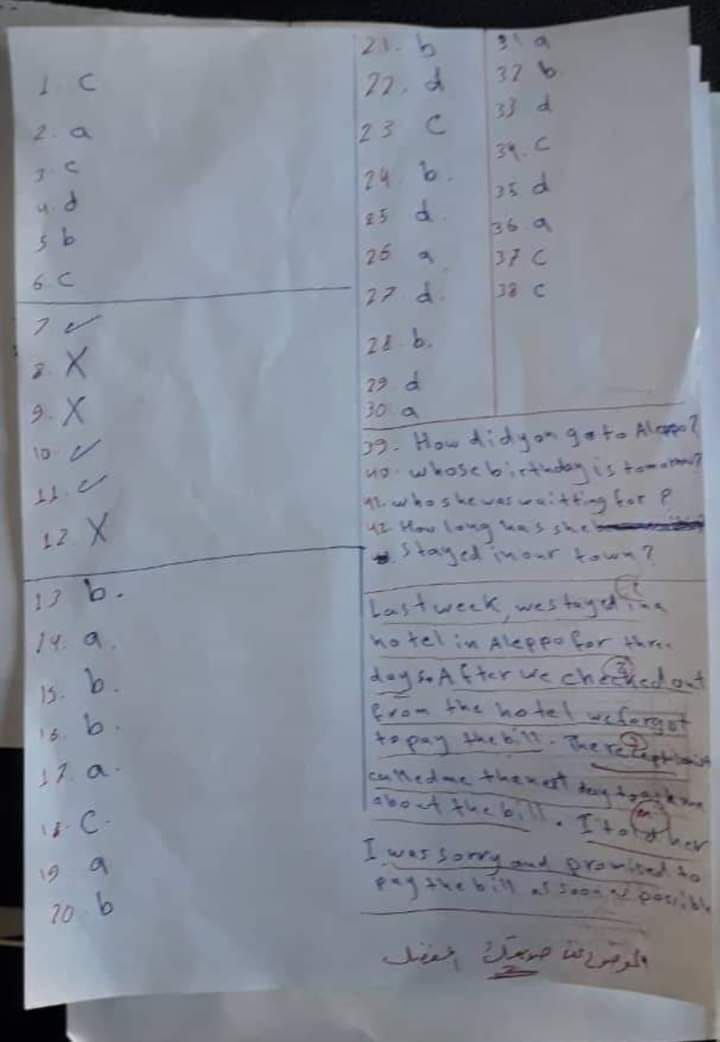 1. c
2. a
3. c
4. d
5 b
6. c
7 ✓
8. X
9. X
10. ✓
11. ✓
12 X
13 b.
14. a.
15. b.
16. b.
17. a.
18. C.
19 a
20. b
21. b
22. d
23 C
24 b.
25 d.
26 a
27 d.
28 b.
29. d
30. a
31 a
32 b
33 d
34. C
35 d
36. a
37 C
38 C
39. How did you go to Aleppo?
40. whose birthday is tomorrow?
41. who she was waitting for ?
42. How long has she
stayed in our town?
Last week, we stayed in a
hotel in Aleppo for three
days. After we checked out
from the hotel we forgot
to pay the bill. The receptionist
called me the next day to ask me
about the bill. I told her
I was sorry and promised to
pay the bill as soon as possible
الموضوع عن صديقك المفضل